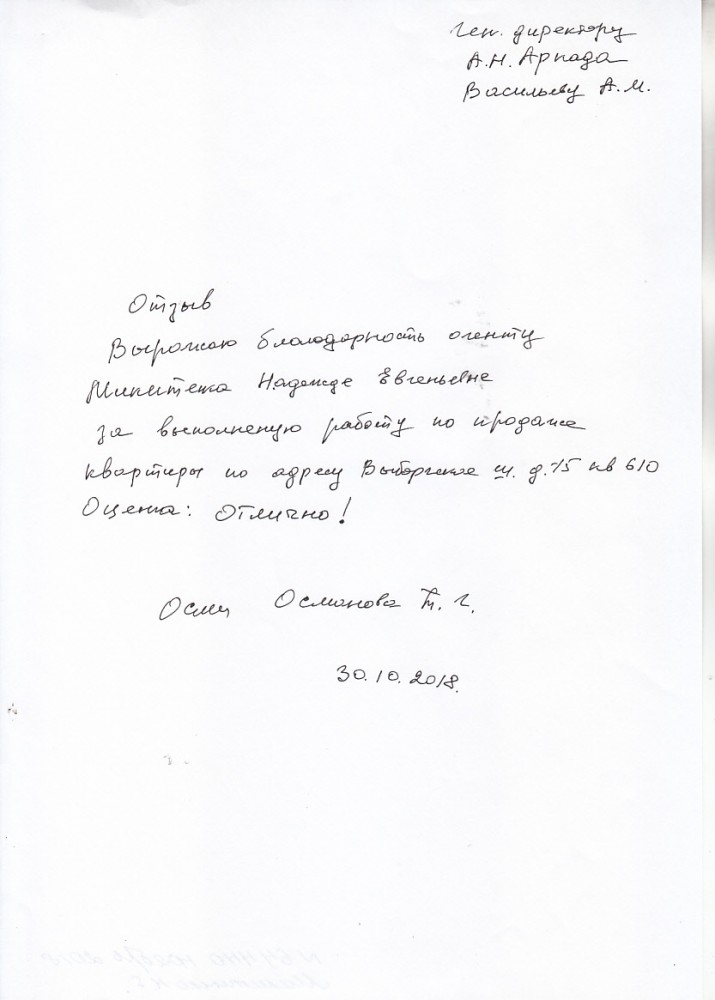 Ген. директору
А.Н. Аркада
Васильеву А.М.
Отзыв
Выражаю благодарность агенту
Надежде Евгеньевне
за выполненую работу по продаже
квартиры по адресу Выборгское ш. д. 15 кв 610
Оценка: Отлично!
Осман Османова Т. Г.
30.10.2018.